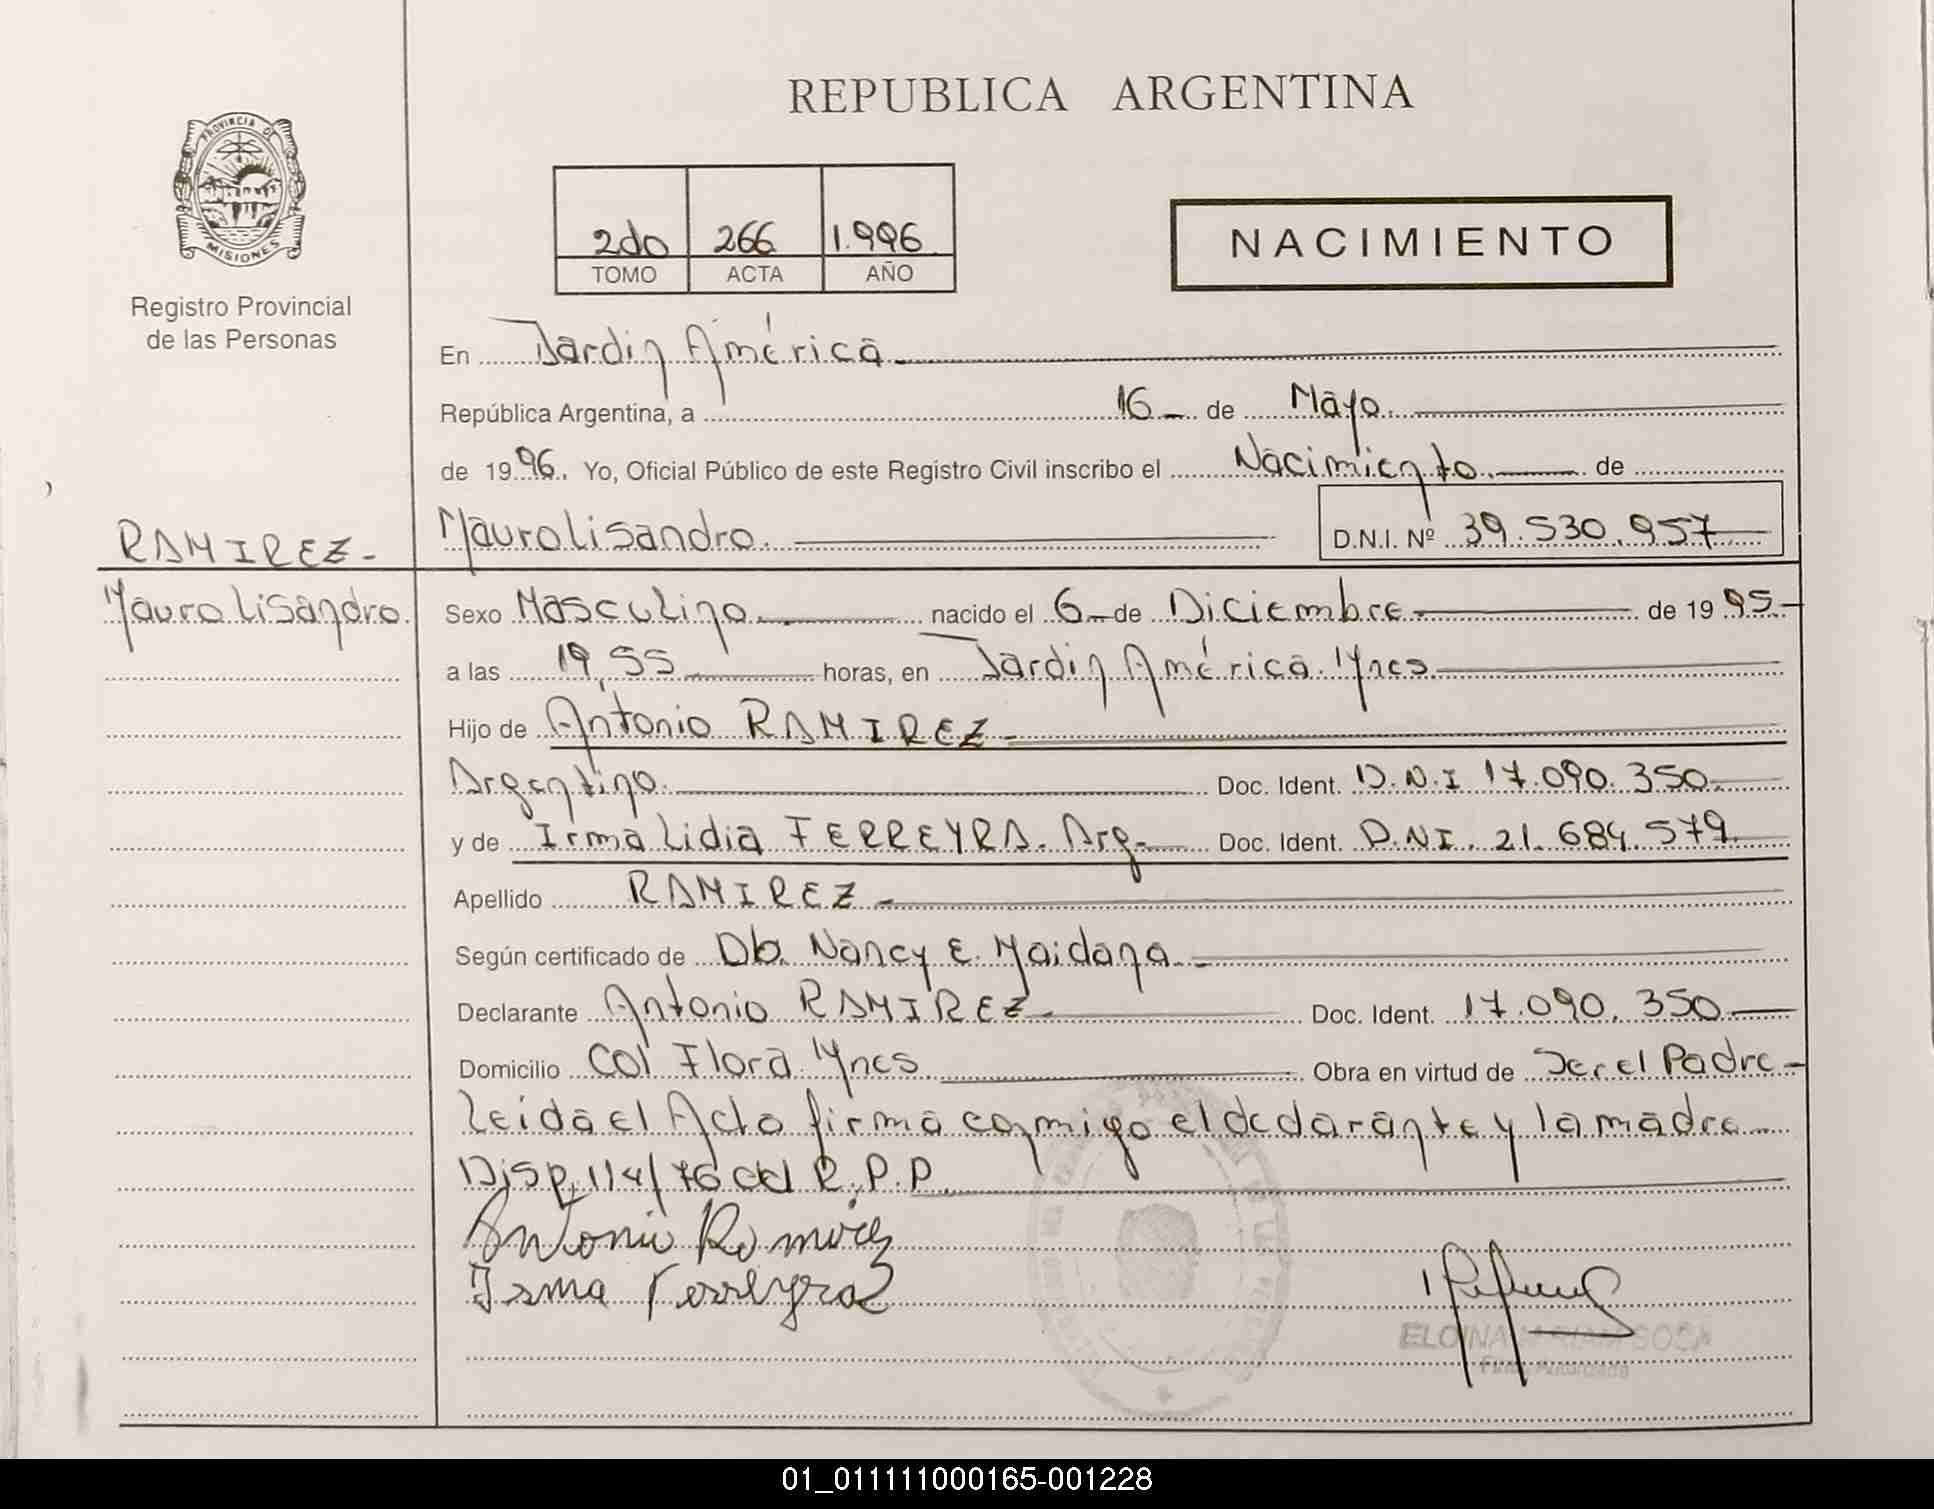 REPUBLICA ARGENTINA
PROVINCIA DE
MISIONES
Registro Provincial
de las Personas
2do 266 1.996
TOMO ACTA AÑO
NACIMIENTO
En Jardin América
República Argentina, a 16 de Mayo
de 1996. Yo, Oficial Público de este Registro Civil inscribo el Nacimiento de
Mauro Lisandro. D.N.I. Nº 39.530.957
RAMIREZ
Mauro Lisandro
Sexo Masculino nacido el 6 de Diciembre de 1995
a las 19,55 horas, en Jardin América. Mnes
Hijo de Antonio RAMIREZ
Argentino. Doc. Ident. D.N.I 17.090.350
y de Irma Lidia FERREYRA. Arg. Doc. Ident. D.NI. 21.684.579
Apellido RAMIREZ
Según certificado de Ob. Nancy E. Maidana
Declarante Antonio RAMIREZ Doc. Ident. 17.090.350
Domicilio Col Flora. Mnes Obra en virtud de Ser el Padre
Leida el Acta firma conmigo el declarante y la madre
Disp. 114/76 del R.P.P.
Antonio Ramirez
Irma Ferreyra
ELOINA SOSA
01_011111000165-001228